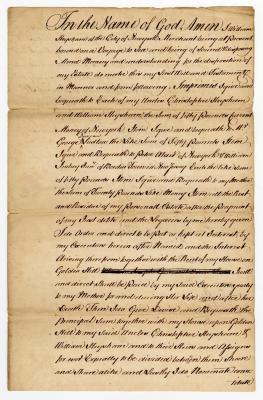 In the Name of God Amen I William
Stephens of the City of New York Merchant being at Present
bound on a Voyage to Sea and being of Sound Disposing
Mind Memory and understanding do the disposition of
my Estate do make this my Last Will and Testament
in Manner and form following Imprimis I give and
bequeath to Each of my Uncles Christopher Stephens
and William Stephens the Sum of fifty Pounds Current
Money of New York Item I give and bequeath to Mr
George the like Sum of fifty Pounds Item
I give and Bequeath to Peter of New York & William
of New Jersey Each the like Sum
of fifty Pounds Item I give and Bequeath to my
the Sum of Twenty Pounds like Money Item all the Rest
and Residue of my Personal Estate after the Payment
of my Just debts and the Legacies by me hereby given
I do Order and direct to be put or kept at Interest by
my Executors herein after Named and the Interest
Arising therefrom together with the Rent of my House on
Golden Hill I will
and direct Shall be Paid by my Said Executors
to my Mother for and during Her Life and after her
Death Then I do Give Devise and Bequeath the
Principal Sum together with my House upon Golden
Hill to my Said Uncles Christopher Stephens &
William Stephens and to their Heirs and Assigns
for ever Equally to be divided between them Share
and Share alike and Lastly I do Nominate